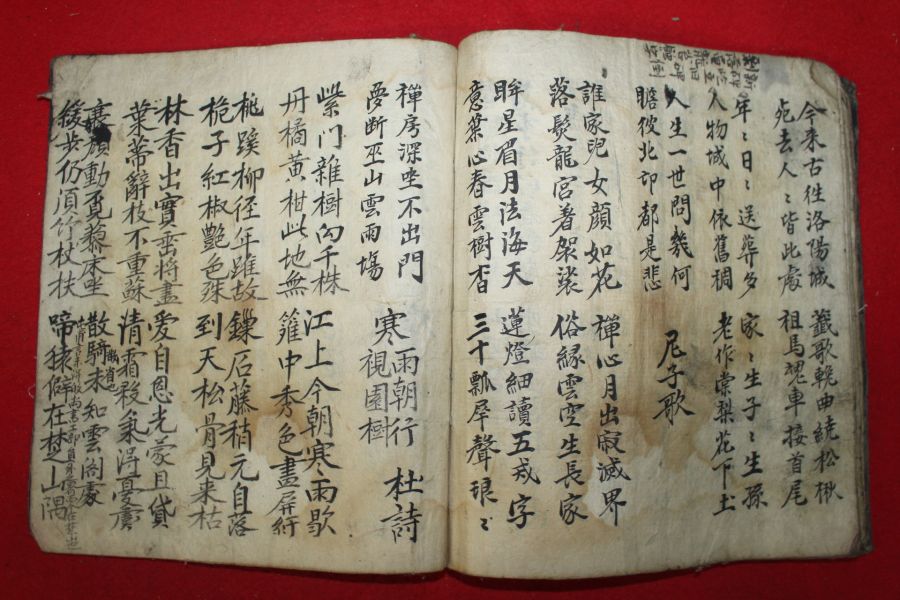 今来古徃洛陽城 歌輓曲繞松楸
死去人〻皆此處 祖馬魂車接首尾
年〻日〻送葬多 家〻生子〻生孫
人物城中依舊稠 老作棠梨花下土
人生一世問幾何
瞻彼北邙都是悲 尼子歌
誰家兒女顔如花 禅心月出寂滅界
落髮龍宮著袈裟 俗縁雲空生長家
眸星眉月法海天 蓮燈細讀五戒字
意葉心春雲樹杳 三十瓢犀聲琅〻
禅房深坐不出門
夢断巫山雲雨塲 寒雨朝行視園樹 杜詩
柴門雜樹向千株 江上今朝寒雨歇
丹橘黄柑此地無 籬中秀色畫屏紆
桃蹊柳徑年雖故 鏁石藤稍元自落
梔子紅椒艶色殊 到天松骨見来枯
林香出實垂将盡 愛自恩光蒙且貸
葉蒂辭枝不重蘇 清霜殺氣得憂虞
衰顔動覓藜床坐 散騎未知雲閣處
緩步仍須竹杖扶 啼猿僻在楚山隅